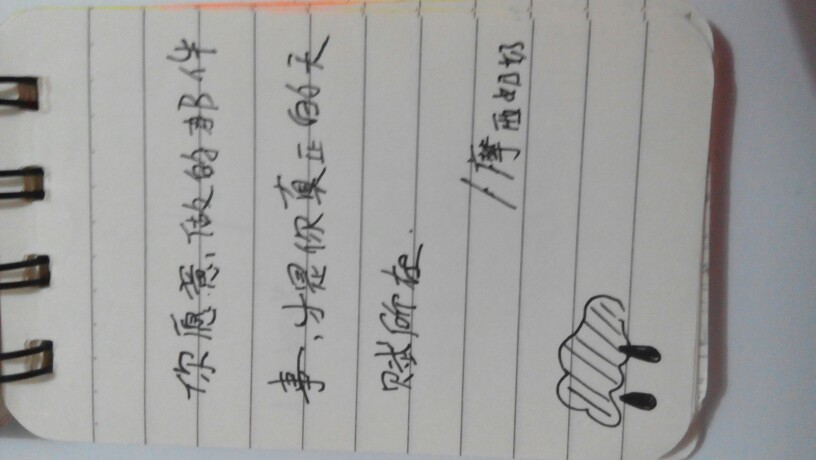 你愿意做的那件
事,才是你真正的天
赋所在.
/摩西奶奶